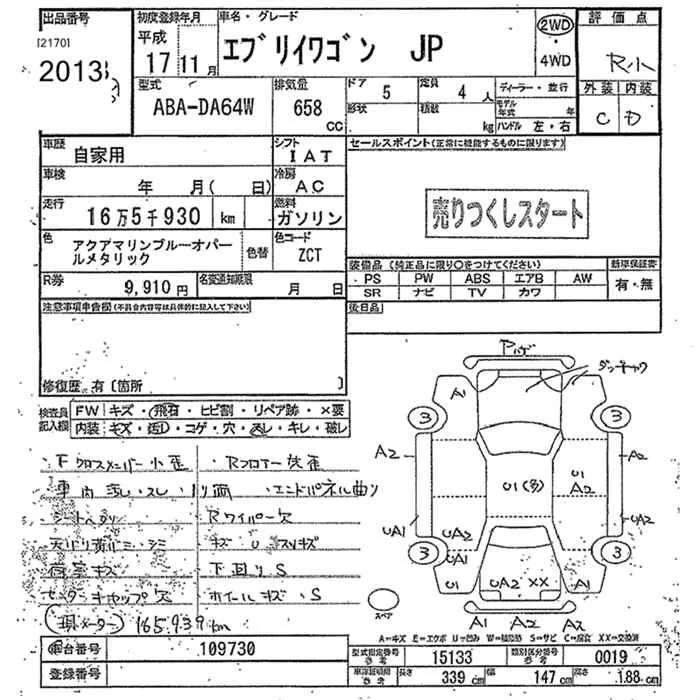 出品番号
[2170]
2013
初度登録年月
平成
17 11月
車名・グレード
エブリイワゴン JP
2WD
4WD
評価点
R小
外装 内装
C D
型式
ABA-DA64W
排気量
658
CC
ドア 5
形状
定員 4人
積数 kg
ディーラー・並行
モデル年式 年
ハンドル 左・右
車歴
自家用
シフト
IAT
セールスポイント(正常に機能するものに限ります)
車検
年 月( 日)
冷房
AC
売りつくしスタート
走行
16万5千930 km
燃料
ガソリン
色
アクアマリンブルーオパー
ルメタリック
色替
色コード
ZCT
装備品(純正品に限り○をつけてください)
新車保証書
PS PW ABS エアB AW
有・無
SR ナビ TV カワ
R券
9,910円
名変通知期限
月 日
後日品
注意事項申告欄(不具合内容等は具体的に記入して下さい)
修復歴 有〔箇所 〕
検査員
記入欄
FW キズ・飛石・ヒビ割・リペア跡・×要
内装 キズ・汚れ・コゲ・穴・スレ・キレ・破レ
・Fクロスメンバー小歪
・Rフロアー歪
・エンドパネル曲り
Rワイパー欠
キズ U スリキズ
下回りS
荷室キズ
センターキャップ欠
ホイールキズ・S
(現メーター) 165,939km
A1
3
3
A2
A2
U1(多)
U1
A2
UA1
UA2
UA2
UA2
3
3
U1
UA2 XX
A1
スペア
A1 A2 A2
A=キズ E=エクボ U=凹み W=補修跡 S=サビ C=腐食 XX=交換済
車台番号
109730
登録番号
型式指定番号
参考
15133
類別区分番号
参考
0019
車検証明細
参考
長さ 339cm 幅 147cm 高さ 188cm